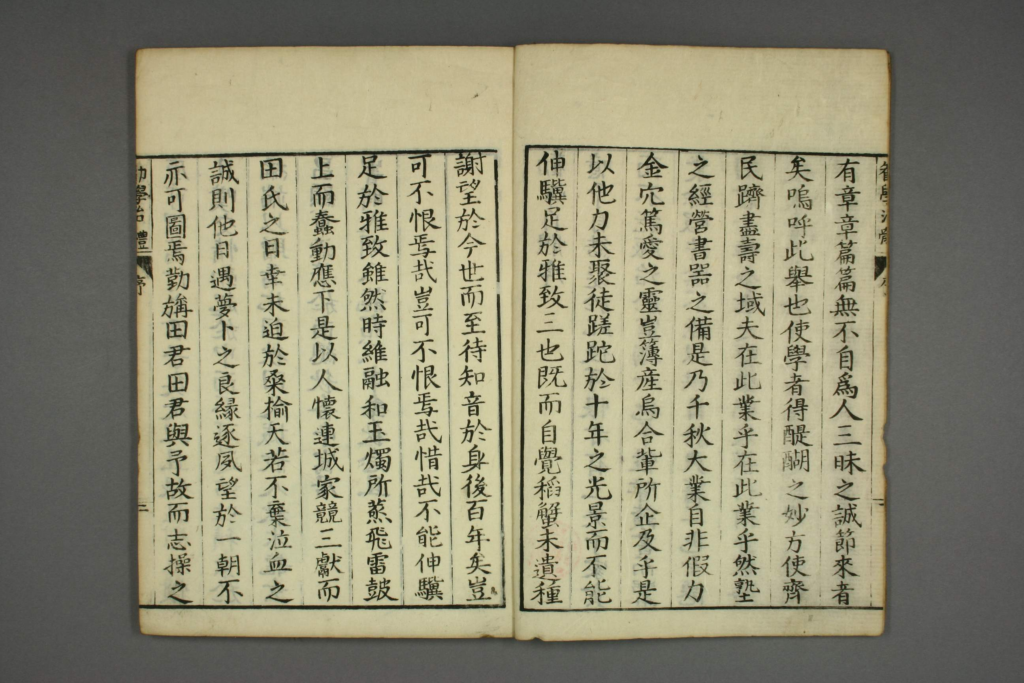 有章章篇篇無不自爲人三昧之誠節來者
矣嗚呼此擧也使學者得醍醐之妙方使齊
民躋盡壽之域夫在此業乎在此業乎然塾
之經營書器之備是乃千秋大業自非假力
金穴篤愛之靈豈簿産烏合輩所企及乎是
以他力未聚徒蹉跎於十年之光景而不能
伸驥足於雅致三也既而自覺稻蟹未遺種
謝望於今世而至待知音於身後百年矣豈
可不恨焉哉豈可不恨焉哉惜哉不能伸驥
足於雅致雖然時維融和玉燭所蒸飛雷鼓
上而蠢動應下是以人懷連城家競三獻而
田氏之日幸未迫於桑楡天若不棄泣血之
誠則他日遇夢卜之良縁逐夙望於一朝不
亦可圖焉勤旃田君田君與予故而志操之
學治體
序
二